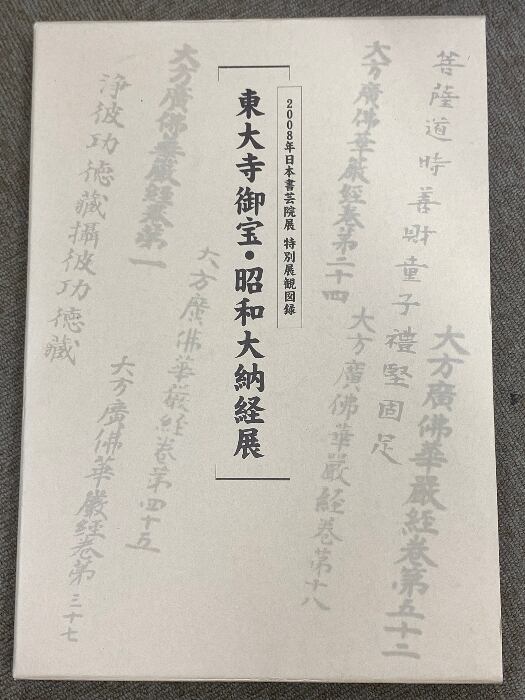 菩薩道時善財童子禮堅固足
大方廣佛華嚴経卷第五十二
大方廣佛華嚴経卷第二十四
大方廣佛華嚴経卷第十八
2008年日本書芸院展 特別展観図録
東大寺御宝・昭和大納経展
大方廣佛華嚴経卷第一
大方廣佛華嚴経卷第四十五
浄彼功徳藏攝彼功徳藏
大方廣佛華嚴経卷第三十七